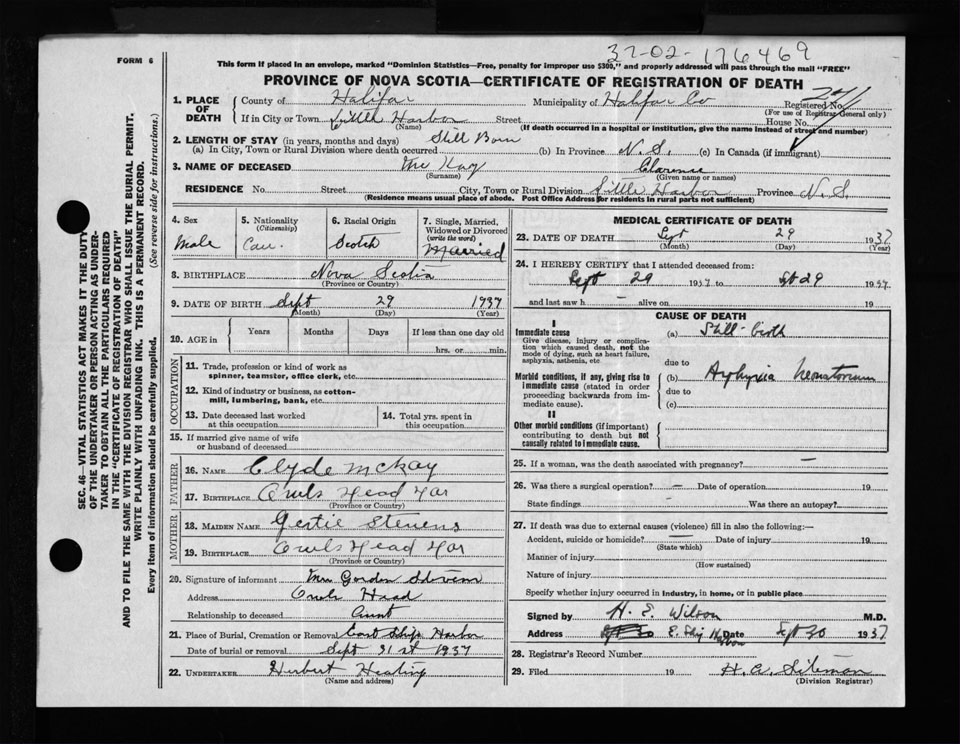 37-02-176469
FORM 6
This form if placed in an envelope, marked "Dominion Statistics—Free, penalty for improper use $300," and properly addressed will pass through the mail "FREE"
PROVINCE OF NOVA SCOTIA—CERTIFICATE OF REGISTRATION OF DEATH
1. PLACE OF DEATH
County of Halifax Municipality of Halifax Co Registered No.
(For use of Registrar General only)
If in City or Town Little Harbor Street House No.
(Name) (If death occurred in a hospital or institution, give the name instead of street and number)
2. LENGTH OF STAY (in years, months and days) Still Born
(a) In City, Town or Rural Division where death occurred (b) In Province N.S. (c) In Canada (if immigrant)
3. NAME OF DECEASED McKay Clarence
(Surname) (Given name or names)
RESIDENCE No. Street City, Town or Rural Division Little Harbor Province N.S.
(Residence means usual place of abode. Post Office Address for residents in rural parts not sufficient)
4. Sex
Male
5. Nationality
(Citizenship)
Can.
6. Racial Origin
Scotch
7. Single, Married, Widowed or Divorced
(write the word)
Married
8. BIRTHPLACE Nova Scotia
(Province or Country)
9. DATE OF BIRTH Sept 29 1937
(Month) (Day) (Year)
10. AGE in Years Months Days If less than one day old
hrs. or min.
OCCUPATION
11. Trade, profession or kind of work as
spinner, teamster, office clerk, etc.
12. Kind of industry or business, as cotton-
mill, lumbering, bank, etc.
13. Date deceased last worked
at this occupation
14. Total yrs. spent in
this occupation
15. If married give name of wife
or husband of deceased
FATHER
16. NAME Clyde McKay
17. BIRTHPLACE Owls Head Har
(Province or Country)
MOTHER
18. MAIDEN NAME Gertie Stevens
19. BIRTHPLACE Owls Head Har
(Province or Country)
20. Signature of informant Mrs Gordon Stevens
Address Owls Head
Relationship to deceased Aunt
21. Place of Burial, Cremation or Removal East Ship Harbor
Date of burial or removal Sept 31st 1937
22. UNDERTAKER Herbert
(Name and address)
MEDICAL CERTIFICATE OF DEATH
23. DATE OF DEATH Sept 29 1937
(Month) (Day) (Year)
24. I HEREBY CERTIFY that I attended deceased from
Sept 29 1937 to Sept 29 1937
and last saw h — alive on 19
CAUSE OF DEATH
I
Immediate cause
Give disease, injury or complica-
tion which caused death, not the
mode of dying, such as heart failure,
asphyxia, asthenia, etc
(a) Still-birth
due to
Morbid conditions, if any, giving rise to
immediate cause (stated in order
proceeding backwards from im-
mediate cause).
(b) Asphyxia Neonatorum
due to
(c)
II
Other morbid conditions (if important)
contributing to death but not
causally related to immediate cause.
25. If a woman, was the death associated with pregnancy? —
26. Was there a surgical operation? — Date of operation 19
State findings — Was there an autopsy?
27. If death was due to external causes (violence) fill in also the following:—
Accident, suicide or homicide? — Date of injury 19
(State which)
Manner of injury
(How sustained)
Nature of injury
Specify whether injury occurred in industry, in home, or in public place
Signed by H. E. Wilson M.D.
Address E. Ship Harbor Date Sept 30 1937
28. Registrar's Record Number
29. Filed 19 H. A. Siteman
(Division Registrar)
SEC. 46—VITAL STATISTICS ACT MAKES IT THE DUTY
OF THE UNDERTAKER OR PERSON ACTING AS UNDER-
TAKER TO OBTAIN ALL THE PARTICULARS REQUIRED
IN THE "CERTIFICATE OF REGISTRATION OF DEATH"
AND TO FILE THE SAME WITH THE DIVISION REGISTRAR WHO SHALL ISSUE THE BURIAL PERMIT.
WRITE PLAINLY WITH UNFADING INK. THIS IS A PERMANENT RECORD.
Every item of information should be carefully supplied. (See reverse side for instructions.)